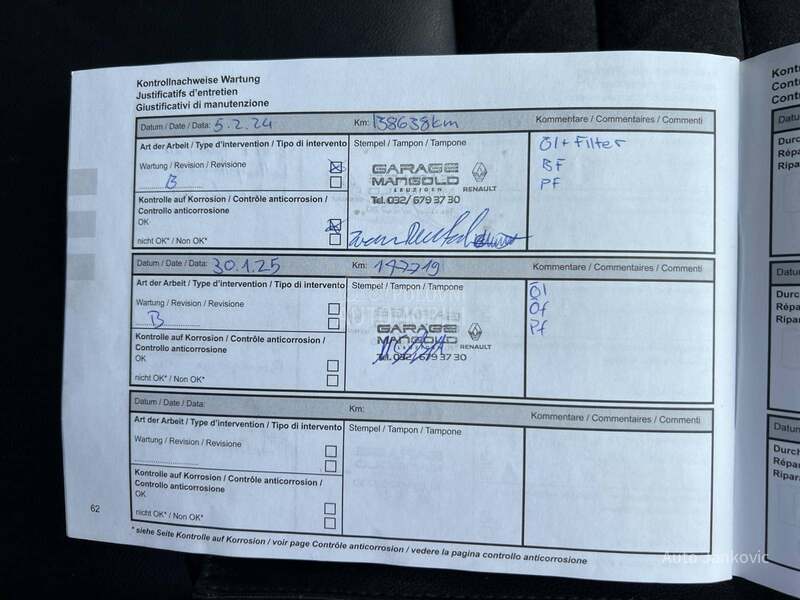 Kontrollnachweise Wartung
Justificatifs d'entretien
Giustificativi di manutenzione
Datum / Date / Data: 5.2.24 Km: 138638km Kommentare / Commentaires / Commenti
Art der Arbeit / Type d'intervention / Tipo di intervento Stempel / Tampon / Tampone Öl + Filter
Wartung / Revision / Revisione BF
B PF
GARAGE
MANGOLD
LEUZIGEN
RENAULT
Tel. 032/ 679 37 30
Kontrolle auf Korrosion / Contrôle anticorrosion /
Controllo anticorrosione
OK
nicht OK* / Non OK*
Datum / Date / Data: 30.1.25 Km: 147719 Kommentare / Commentaires / Commenti
Art der Arbeit / Type d'intervention / Tipo di intervento Stempel / Tampon / Tampone Öl
Wartung / Revision / Revisione Öf
B Pf
GARAGE
MANGOLD
RENAULT
Tel. 032/ 679 37 30
Kontrolle auf Korrosion / Contrôle anticorrosion /
Controllo anticorrosione
OK
nicht OK* / Non OK*
Datum / Date / Data: Km: Kommentare / Commentaires / Commenti
Art der Arbeit / Type d'intervention / Tipo di intervento Stempel / Tampon / Tampone
Wartung / Revision / Revisione
Kontrolle auf Korrosion / Contrôle anticorrosion /
Controllo anticorrosione
OK
nicht OK* / Non OK*
* siehe Seite Kontrolle auf Korrosion / voir page Contrôle anticorrosion / vedere la pagina controllo anticorrosione
62
Auto Jankovic